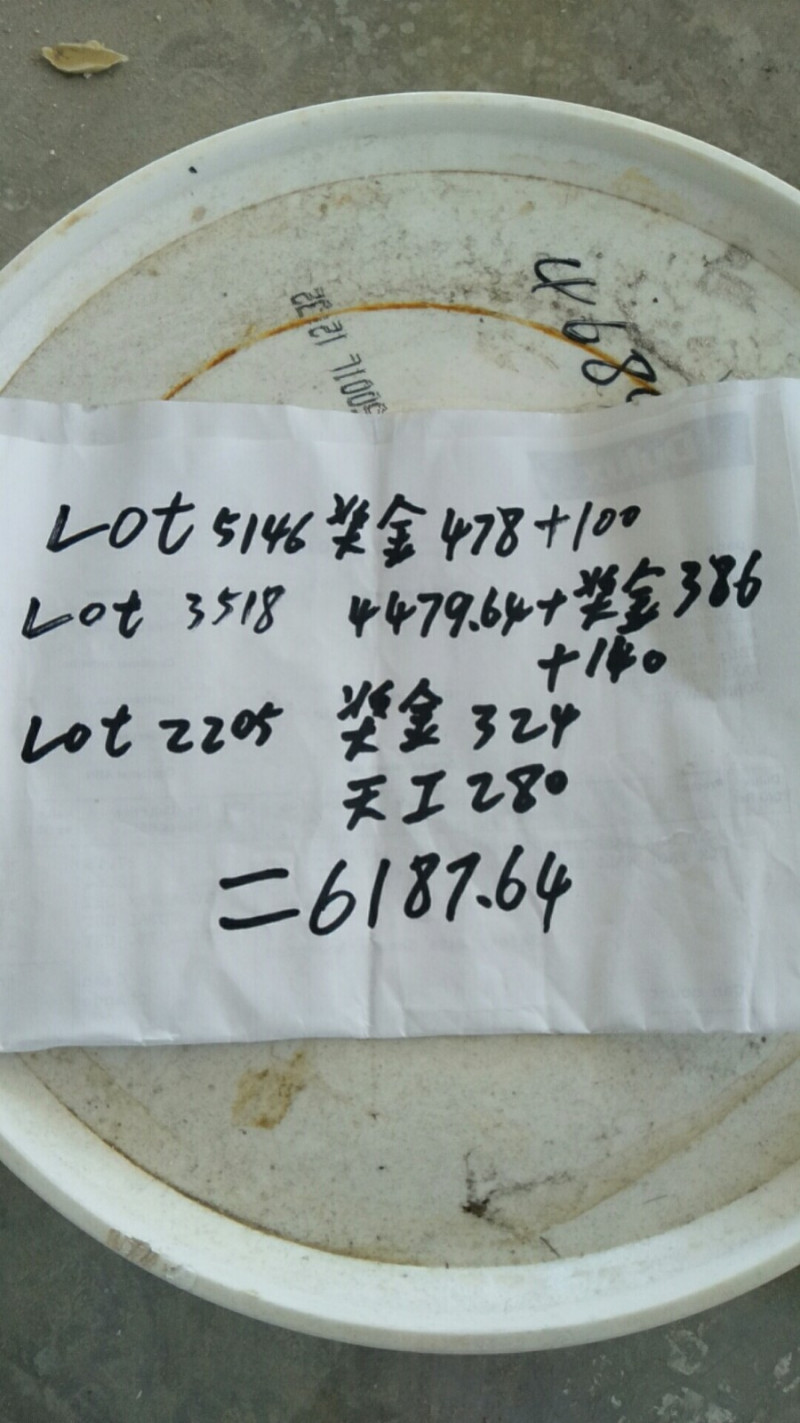 4689
12:32
Lot 5146 奖金 478+100
Lot 3518 4479.64+奖金386
+140
Lot 2205 奖金 324
天工 280
=6187.64